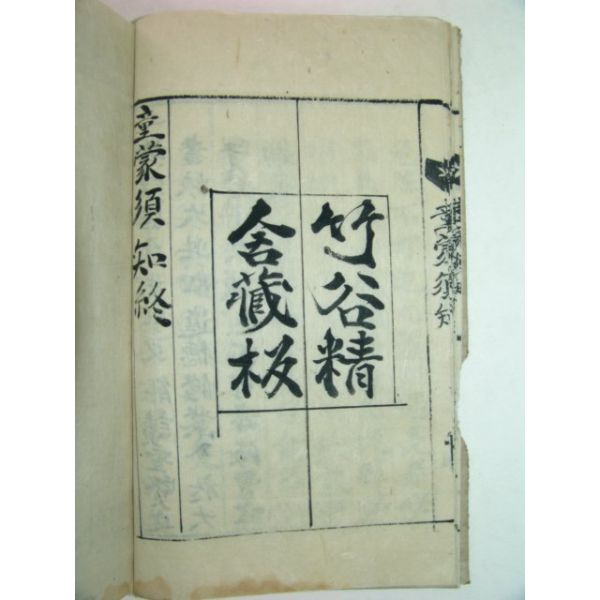 童蒙須知
竹谷精
舍藏板
童蒙須知終